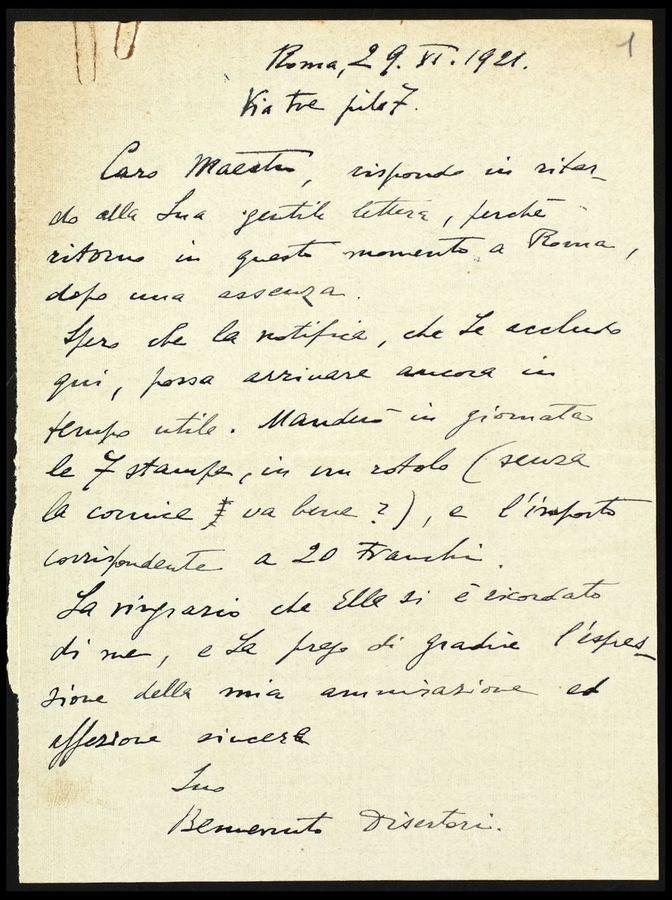 1
Roma, 29. XI. 1921.
Via tre pile 7.
Caro Maestro, rispondo in ritar-
do alla Sua gentile lettera, perchè
ritorno in questo momento a Roma,
dopo una assenza.
Spero che la notifica, che Le accludo
qui, possa arrivare ancora in
tempo utile. Manderò in giornata
le 7 stampe, in un rotolo (senza
la cornice va bene?), e l'importo
corrispondente a 20 Franchi.
La ringrazio che Ella si è ricordato
di me, e La prego di gradire l'espres-
sione della mia ammirazione ed
affezione sincera
Suo
Benvenuto Disertori.